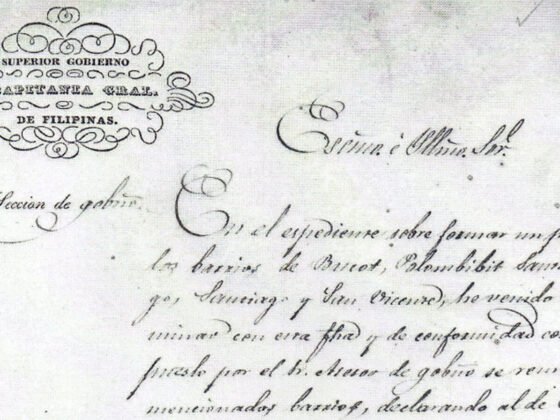 SUPERIOR GOBIERNO
CAPITANIA GRAL.
DE FILIPINAS.
Seccion de gobño.
Escmo. é Illmo. Sor.
En el espediente sobre formar un
los barrios de Bucot, Polombibit
go, Santiago y San Vicente, he venido
minar con esta fha y de conformidad co
puesto por el Sr. Asesor de gobño se
mencionados barrios, declarando al de